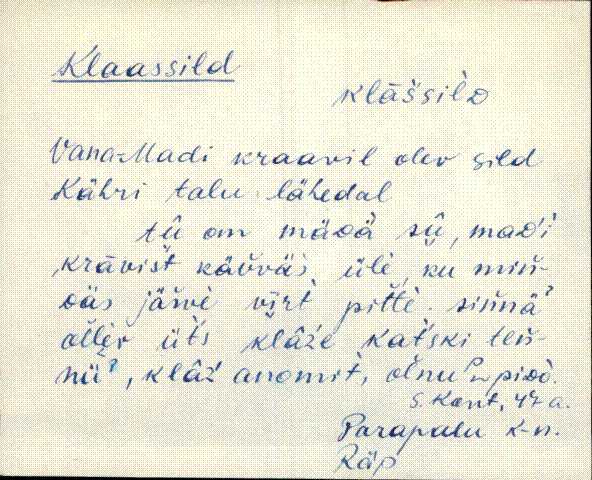 Klaassild
klāšsìlᴅ
Vana-Madi kraavil olev sild
Kähri talu lähedal
tū om mäᴅä sū, maᴅ́i
krāvist käv̆väs, üle, ku miń-
ᴅäs järve vīrt pitte. sińnä
olĺev üt́s klāže kat́ski ten-
nü̆ˀ, klāž anomit, olnuˀ pìᴅò.
S. Kont, 47 a.
Parapalu k-n.
Räp